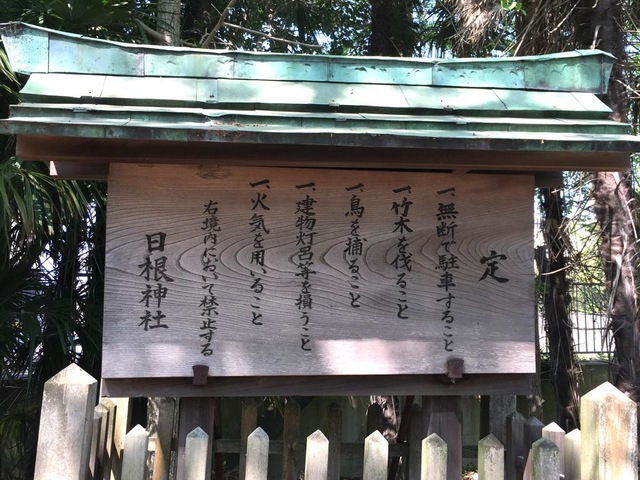 定
一、無断で駐車すること
一、竹木を伐ること
一、鳥を捕ること
一、建物灯呂等を損うこと
一、火気を用いること
右境内において禁止する
日根神社